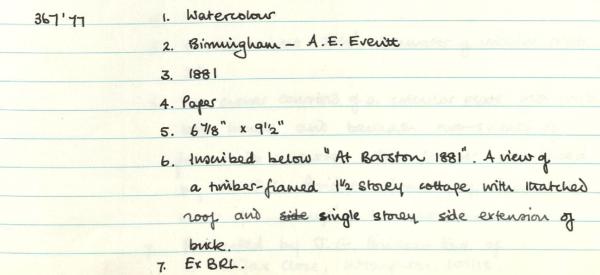 367'77
1. Watercolour
2. Birmingham - A.E. Everitt
3. 1881
4. Paper
5. 6 7/8" x 9 1/2"
6. Inscribed below "At Barston 1881". A view of
a timber-framed 1 1/2 storey cottage with thatched
roof and side single storey side extension of
brick.
7. Ex BRL.